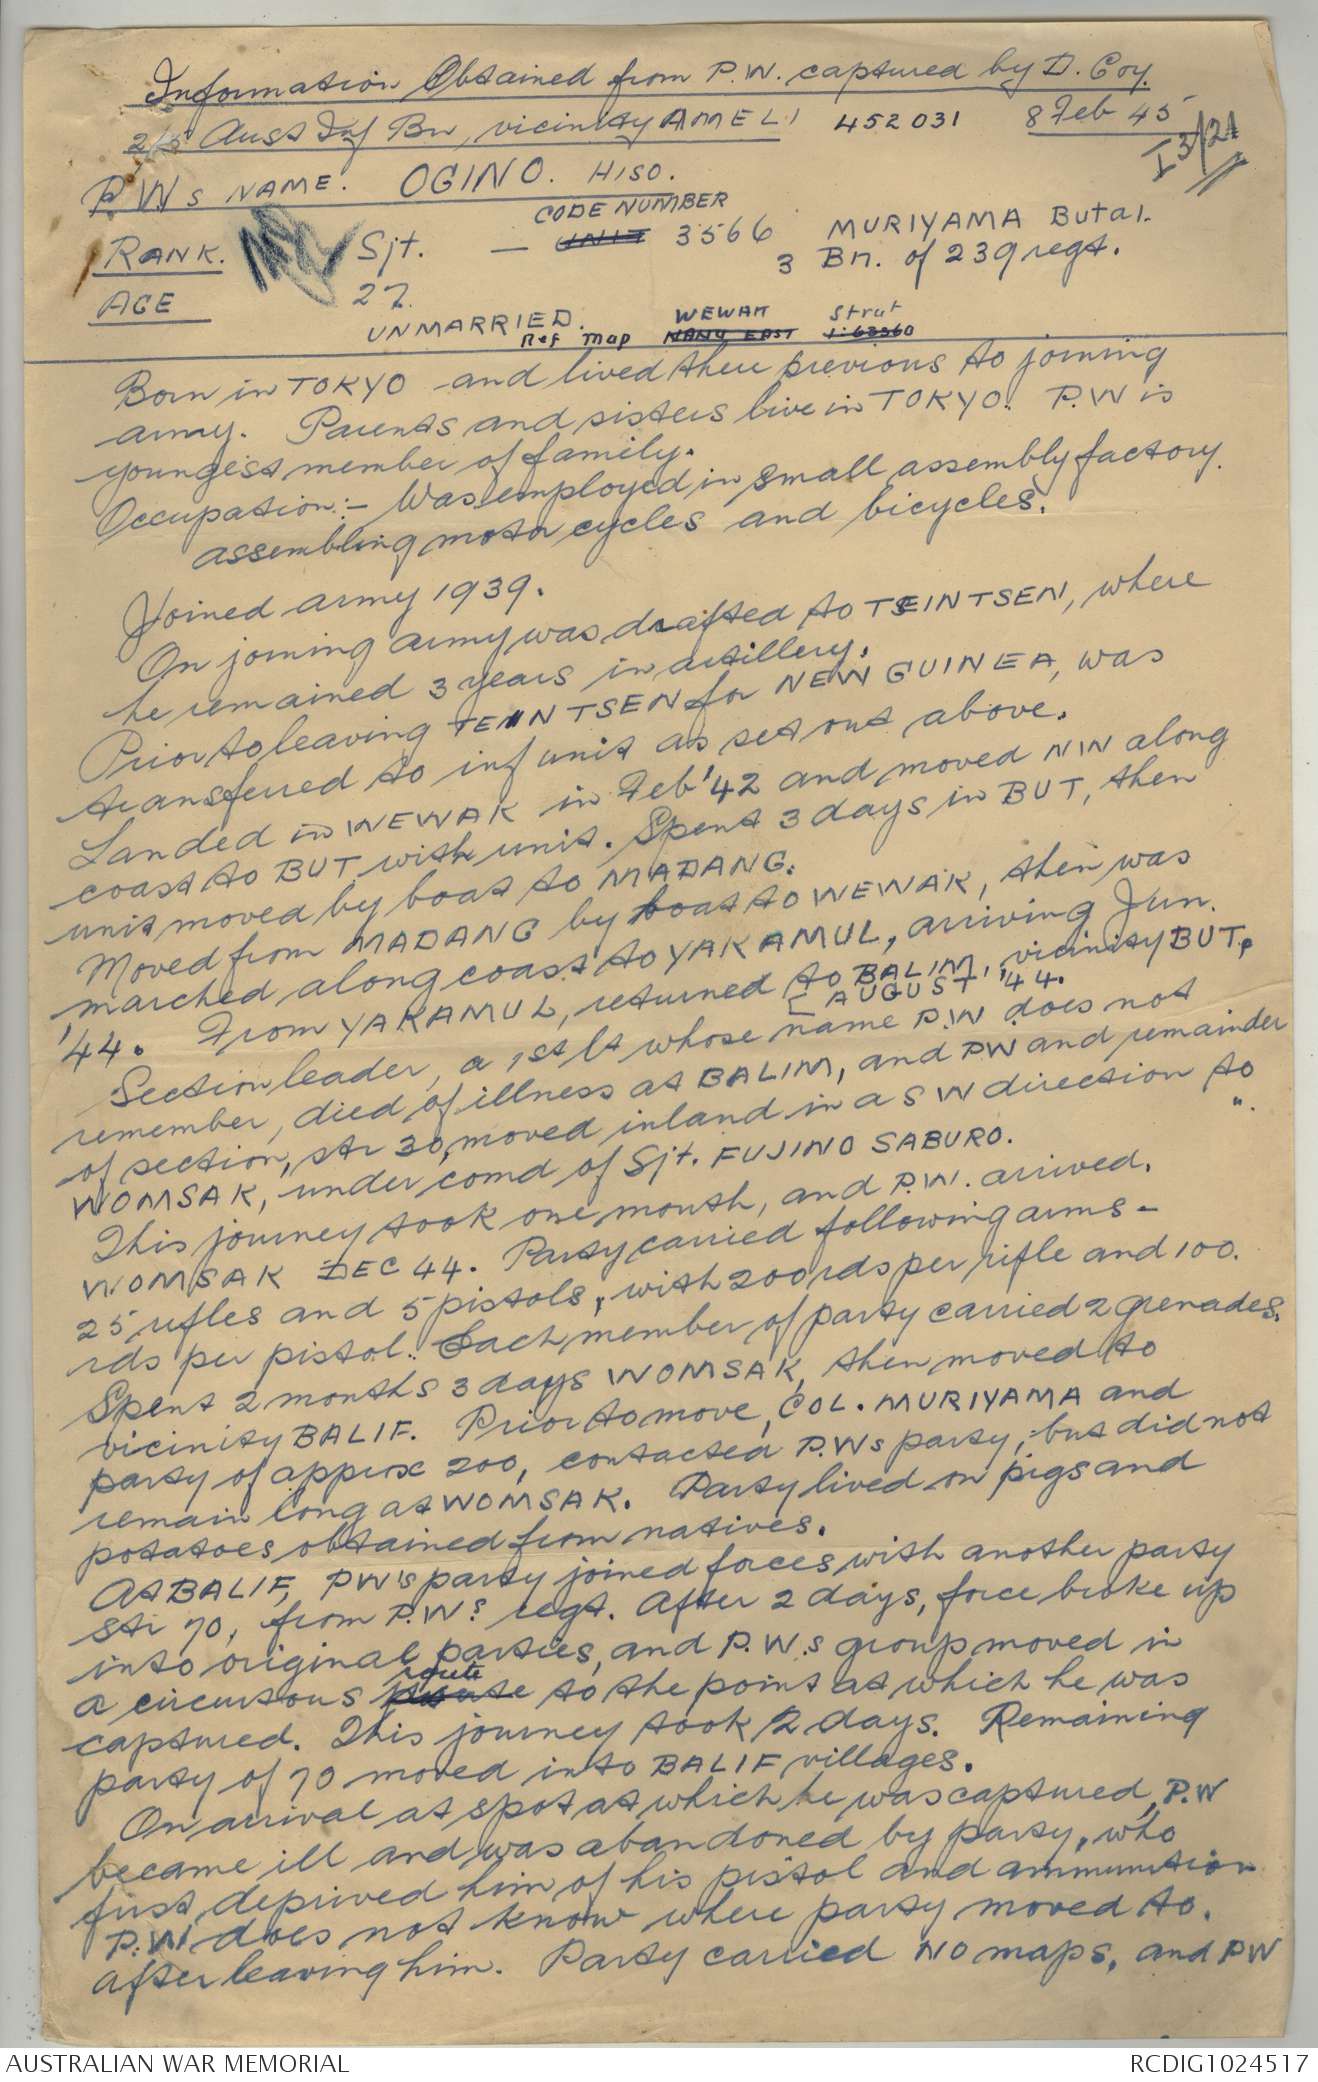 Information Obtained from P.W. captured by D. Coy.
2/5 Aust Inf Bn, vicinity AMELI 452031 8 Feb 45
I 3/21
P.W.s NAME. OGINO. HISO.
CODE NUMBER
RANK. Sjt. — UNIT 3566 MURIYAMA Butai.
3 Bn. of 239 regt.
AGE 27
UNMARRIED.
WEWAK Strat
Ref map NANU EAST 1:63360
Born in TOKYO and lived there previous to joining
army. Parents and sisters live in TOKYO. P.W is
youngest member of family.
Occupation:- Was employed in small assembly factory.
assembling motor cycles and bicycles.
Joined army 1939.
On joining army was drafted to TSEINTSEN, where
he remained 3 years in artillery.
Prior to leaving TEINTSEN for NEW GUINEA, was
transferred to inf unit as set out above.
Landed in WEWAK in Feb '42 and moved NW along
coast to BUT with unit. Spent 3 days in BUT, then
unit moved by boat to MADANG.
Moved from MADANG by boat to WEWAK, then was
marched along coast to YAKAMUL, arriving Jun.
'44. From YAKAMUL, returned to BALIM, vicinity BUT,
[AUGUST '44.
Section leader, a 1st Lt whose name P.W does not
remember, died of illness at BALIM, and PW and remainder
of section, str 30, moved inland in a SW direction to
WOMSAK, under comd of Sjt. FUJINO SABURO. ".
This journey took one month, and P.W. arrived.
WOMSAK DEC 44. Party carried following arms-
25 rifles and 5 pistols, with 200 rds per rifle and 100.
rds per pistol. Each member of party carried 2 grenades.
Spent 2 months 3 days WOMSAK, then moved to
vicinity BALIF. Prior to move, COL. MURIYAMA and
party of approx 200, contacted P.Ws party, but did not
remain long at WOMSAK. Party lived on pigs and
potatoes obtained from natives.
At BALIF, PW's party joined forces with another party
str 70, from P.W.s regt. After 2 days, force broke up
into original parties, and P.W.s group moved in
a circuitous route to the point at which he was
captured. This journey took 12 days. Remaining
party of 70 moved into BALIF villages.
On arrival at spot at which he was captured, P.W
became ill and was abandoned by party, who
first deprived him of his pistol and ammunition
P.W does not know where party moved to.
after leaving him. Party carried NO maps, and PW
AUSTRALIAN WAR MEMORIAL RCDIG1024517